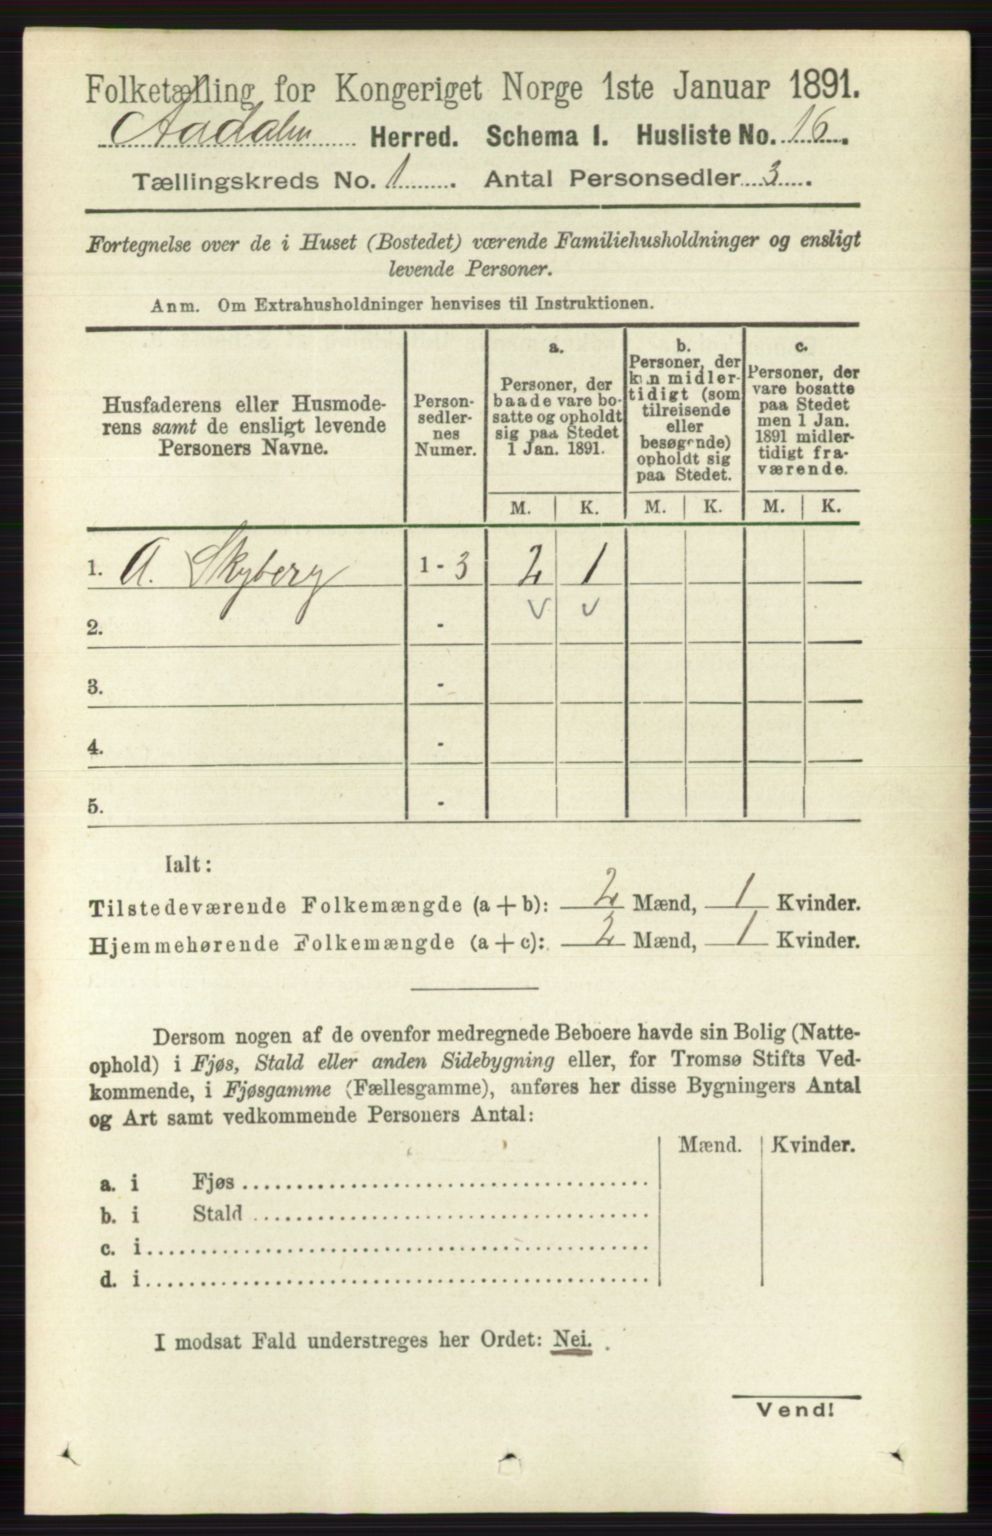 Folketælling for Kongeriget Norge 1ste Januar 1891.
Aadalen Herred. Schema I. Husliste No. 16.
Tællingskreds No. 1. Antal Personsedler 3.
Fortegnelse over de i Huset (Bostedet) værende Familiehusholdninger og ensligt
levende Personer.
Anm. Om Extrahusholdninger henvises til Instruktionen.
Husfaderens eller Husmode-
rens samt de ensligt levende
Personers Navne.
Person-
sedler-
nes
Numer.
a.
Personer, der
baade vare bo-
satte og opholdt
sig paa Stedet
1 Jan. 1891.
b.
Personer, der
kun midler-
tidigt (som
tilreisende
eller
besøgende)
opholdt sig
paa Stedet.
c.
Personer, der
vare bosatte
paa Stedet
men 1 Jan.
1891 midler-
tidigt fra-
værende.
M. K. M. K. M. K.
1. A. Skyberg 1 - 3 2 1
2. -
3. -
4. -
5. -
Ialt:
Tilstedeværende Folkemængde (a + b): 2 Mænd, 1 Kvinder.
Hjemmehørende Folkemængde (a + c): 2 Mænd, 1 Kvinder.
Dersom nogen af de ovenfor medregnede Beboere havde sin Bolig (Natte-
ophold) i Fjøs, Stald eller anden Sidebygning eller, for Tromsø Stifts Ved-
kommende, i Fjøsgamme (Fællesgamme), anføres her disse Bygningers Antal
og Art samt vedkommende Personers Antal:
Mænd. Kvinder.
a. i Fjøs
b. i Stald
c. i
d. i
I modsat Fald understreges her Ordet: Nei.
Vend!